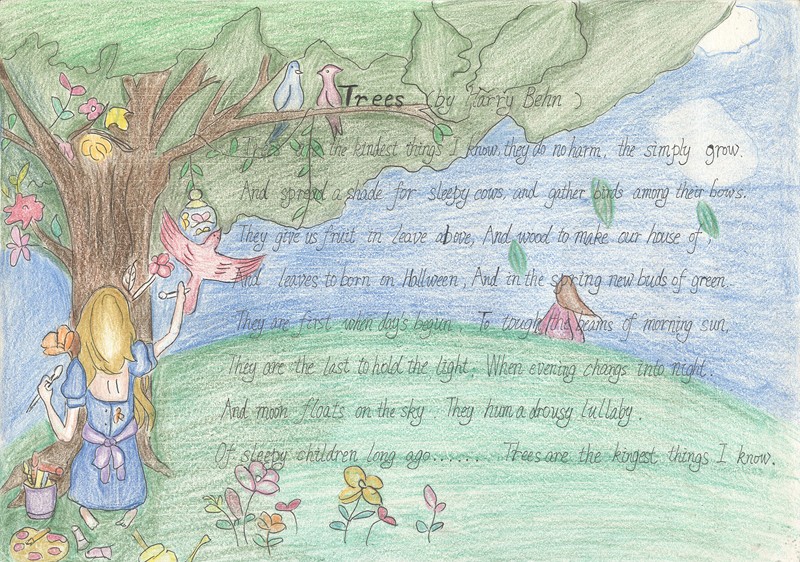 Trees (by Harry Behn)
Trees are the kindest things I know, they do no harm, the simply grow.
And spread a shade for sleepy cows, and gather birds among their bows.
They give us fruit in leave above, And wood to make our house of,
And leaves to born on Holloween, And in the spring new buds of green.
They are first when day's begun, To tough the beams of morning sun,
They are the last to hold the light, When evening changs into night.
And moon floats on the sky. They hum a drousy lullaby.
Of sleepy children long ago....... Trees are the kingest things I know.